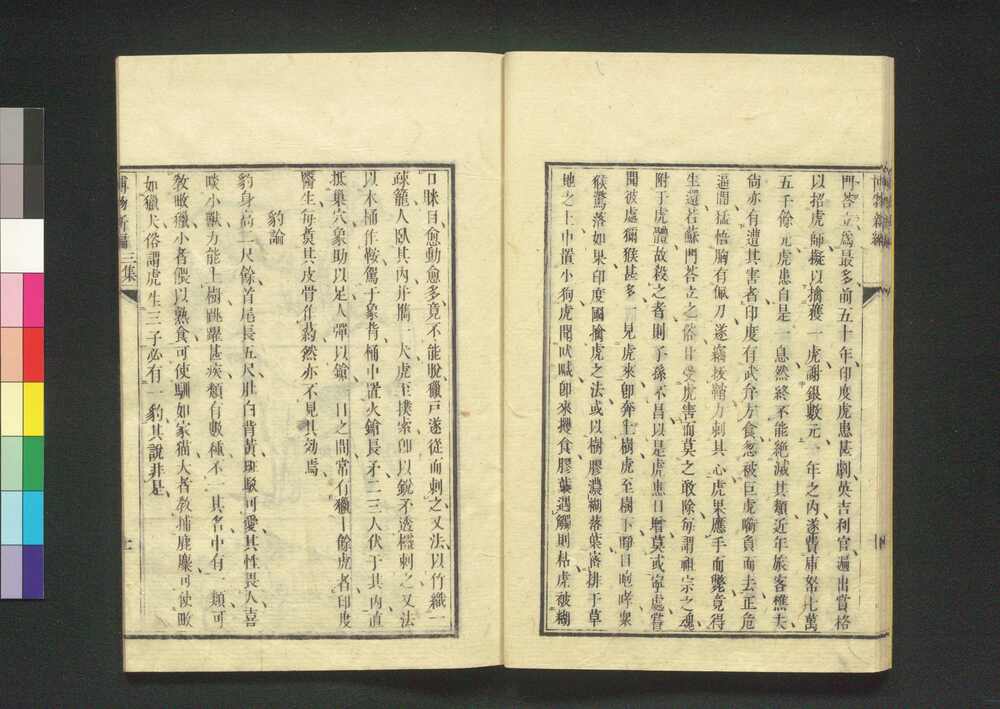 門荅立爲最多前五十年印度虎患甚劇英吉利官遍出賞格
以招虎師擬以擒獲一虎謝銀數元一年之內遂費庫帑七萬
五千餘元虎患自是一息然終不能絶滅其類近年旅客樵夫
尙亦有遭其害者印度有武弁方食忽被巨虎嚙負而去正危
逼間猛悟胸有佩刀遂竊拔鞘力刺其心虎果應手而斃竟得
生還若蘇門荅立之俗甘受虎害而莫之敢除每謂祖宗之魂
附于虎體故殺之者則子孫不昌以是虎患日增莫或寧處嘗
聞彼處獼猴甚多一見虎來卽奔上樹虎至樹下睜目咆哮衆
猴驚落如果印度國擒虎之法或以樹膠濃糊落葉密排于草
地之上中置小狗虎聞吠喊卽來攫食膠葉遇觸則枯虎被糊
目眯目愈動愈多竟不能脫獵戸遂從而刺之又法以竹織一
疎籠人臥其內并携一犬虎至撲索卽以銳矛透檻刺之又法
以木桶作鞍駕于象背桶中置火鎗長矛二三人伏于其內直
抵巢穴象助以足人彈以鎗一日之間常有獵十餘虎者印度
醫生每煑其皮骨作藥然亦不見其効焉
豹論
豹身高二尺餘首尾長五尺肚白背黃斑駁可愛其性畏人喜
啖小獸力能上樹跳躍甚疾類有數種不一其名中有一類可
敎畋獵小者偎以熟食可使馴如家猫大者敎捕鹿麋可使畋
如獵犬俗謂虎生三子必有一豹其說非是
博物新編
三集